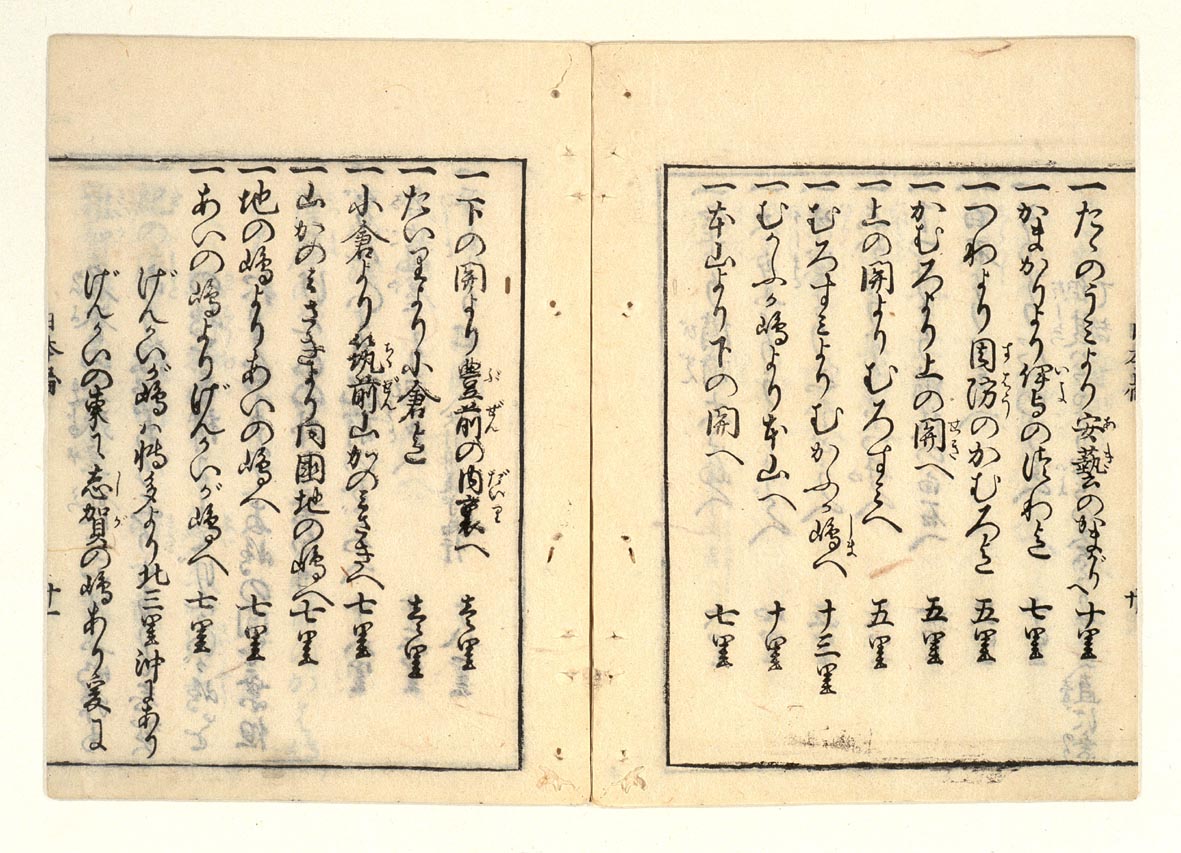 一たゝのうミより安藝のかまがりへ十里
一かまかりより伊与のつわ迄　七里
一つわより周防のかむろ迄　五里
一かむろより上の関へ　五里
一上の関よりむろすミへ　五里
一むろすミよりむかふか嶋へ　十三里
一むかふか嶋より本山へ　十里
一本山より下の関へ　七里
一下の関より豊前の内裏へ　壱里
一たいりより小倉迄　壱里
一小倉より筑前山かのみさきへ七里
一山かのみさきより同国地の嶋へ七里
一地の嶋よりあいの嶋へ　七里
一あいの嶋よりげんかいが嶋へ七里
げんかいが嶋ハ博多より北三里沖にあり
げんかいの東に志賀の嶋あり爰に